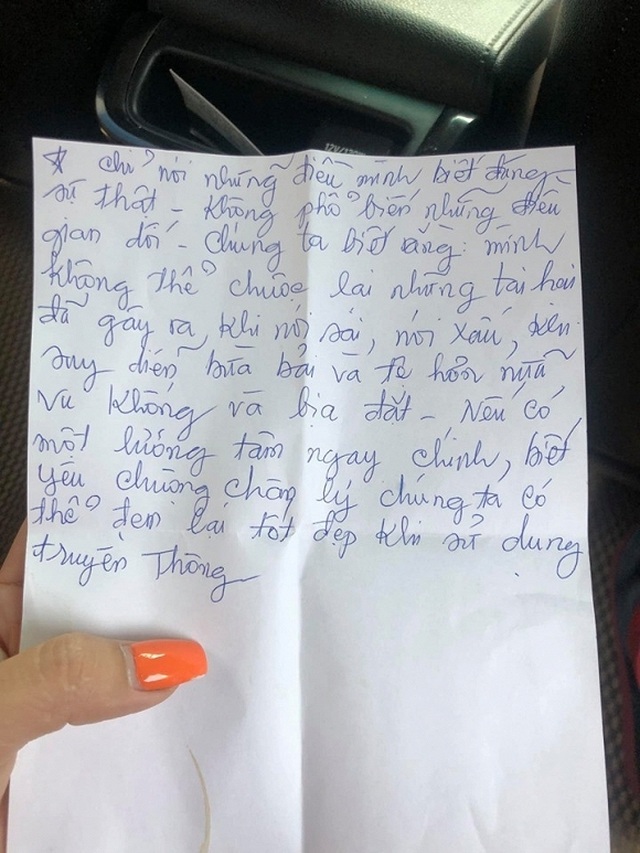 * chỉ nói những điều mình biết đúng -
sự thật - không phổ biến những điều
gian dối - chúng ta biết rằng: mình
không thể chuộc lại những tai hại
đã gây ra, khi nói sai, nói xấu,
suy diễn bừa bãi và tệ hơn nữa,
vu khống và bịa đặt - Nếu có
một lương tâm ngay chính, biết
yêu chương chân lý chúng ta có
thể đem lại tốt đẹp khi sử dụng
truyền Thông